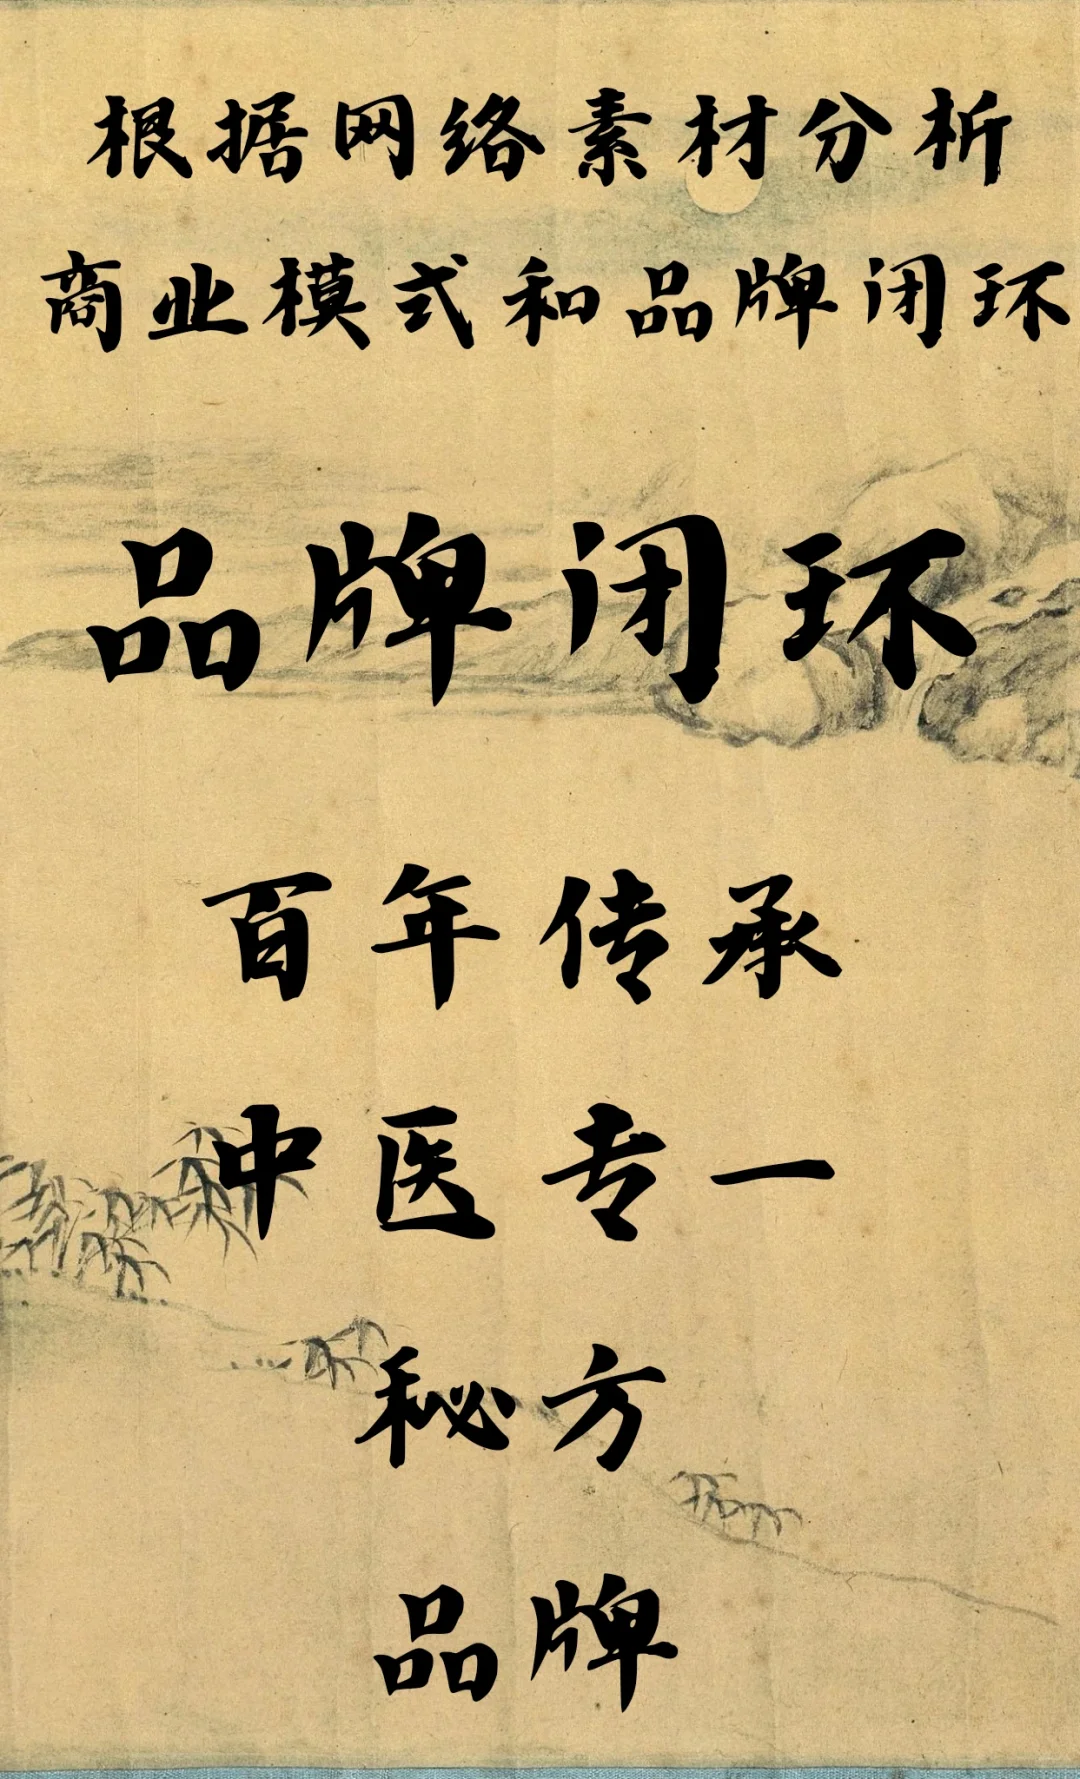 根据网络素材分析
商业模式和品牌闭环
品牌闭环
百年传承
中医专一
秘方
品牌